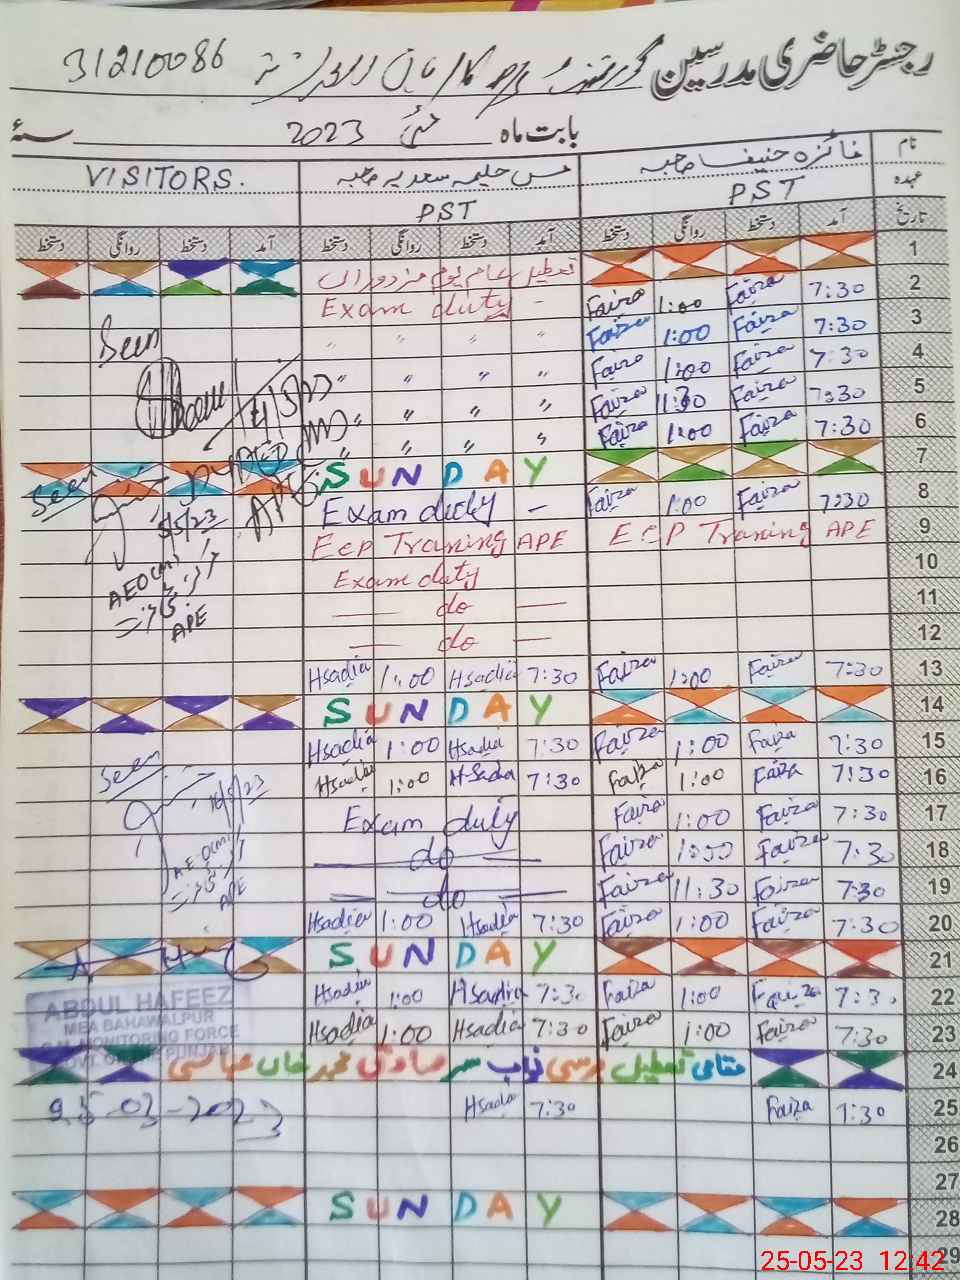 رجسٹر حاضری مدرسین گورنمنٹ 31210086
بابت ماہ مئی 2023 سنہ
نام فائزہ حنیف صاحبہ مس حلیمہ سعدیہ صاحبہ VISITORS.
عہدہ PST PST
تاریخ آمد دستخط روانگی دستخط آمد دستخط روانگی دستخط آمد دستخط روانگی دستخط
1 تعطیل عام یوم مزدوراں
2 7:30 Faiza 1:00 Faiza Exam duty -
3 7:30 Faiza 1:00 Faiza " " " "
Seen
4 7:30 Faiza 1:00 Faiza " " " "
5 7:30 Faiza 11:30 Faiza " " "
6 7:30 Faiza 1:00 Faiza " " "
7 SUNDAY
Seen
8 7:30 Faiza 1:00 Faiza Exam duty -
5/5/23
9 ECP Traning APE ECP Traning APE
10 Exam duty
AEO(M)
11 — do —
APE
12 — do —
13 7:30 Faiza 1:00 Faiza 7:30 Hsadia 1:00 Hsadia
14 SUNDAY
15 7:30 Faiza 1:00 Faiza 7:30 Hsadia 1:00 Hsadia
Seen
16 7:30 Faiza 1:00 Faiza 7:30 H-Sadia 1:00 Hsadia
16/5/23
17 7:30 Faiza 1:00 Faiza Exam duty
18 7:30 Faiza 1:00 Faiza do
A.E.O(M)
19 7:30 Faiza 11:30 Faiza do
APE
20 7:30 Faiza 1:00 Faiza 7:30 Hsadia 1:00 Hsadia
21 SUNDAY
22 7:30 Faiza 1:00 Faiza 7:30 Hsadia 1:00 Hsadia
ABDUL HAFEEZ
MEA BAHAWALPUR
23 7:30 Faiza 1:00 Faiza 7:30 Hsadia 1:00 Hsadia
MONITORING FORCE
GOVT. OF THE PUNJAB
24 مقامی تعطیل برسی نواب سر صادق محمد خاں عباسی
25 7:30 Faiza 7:30 Hsadia
26
27
28 SUNDAY
29
25-05-23 12:42